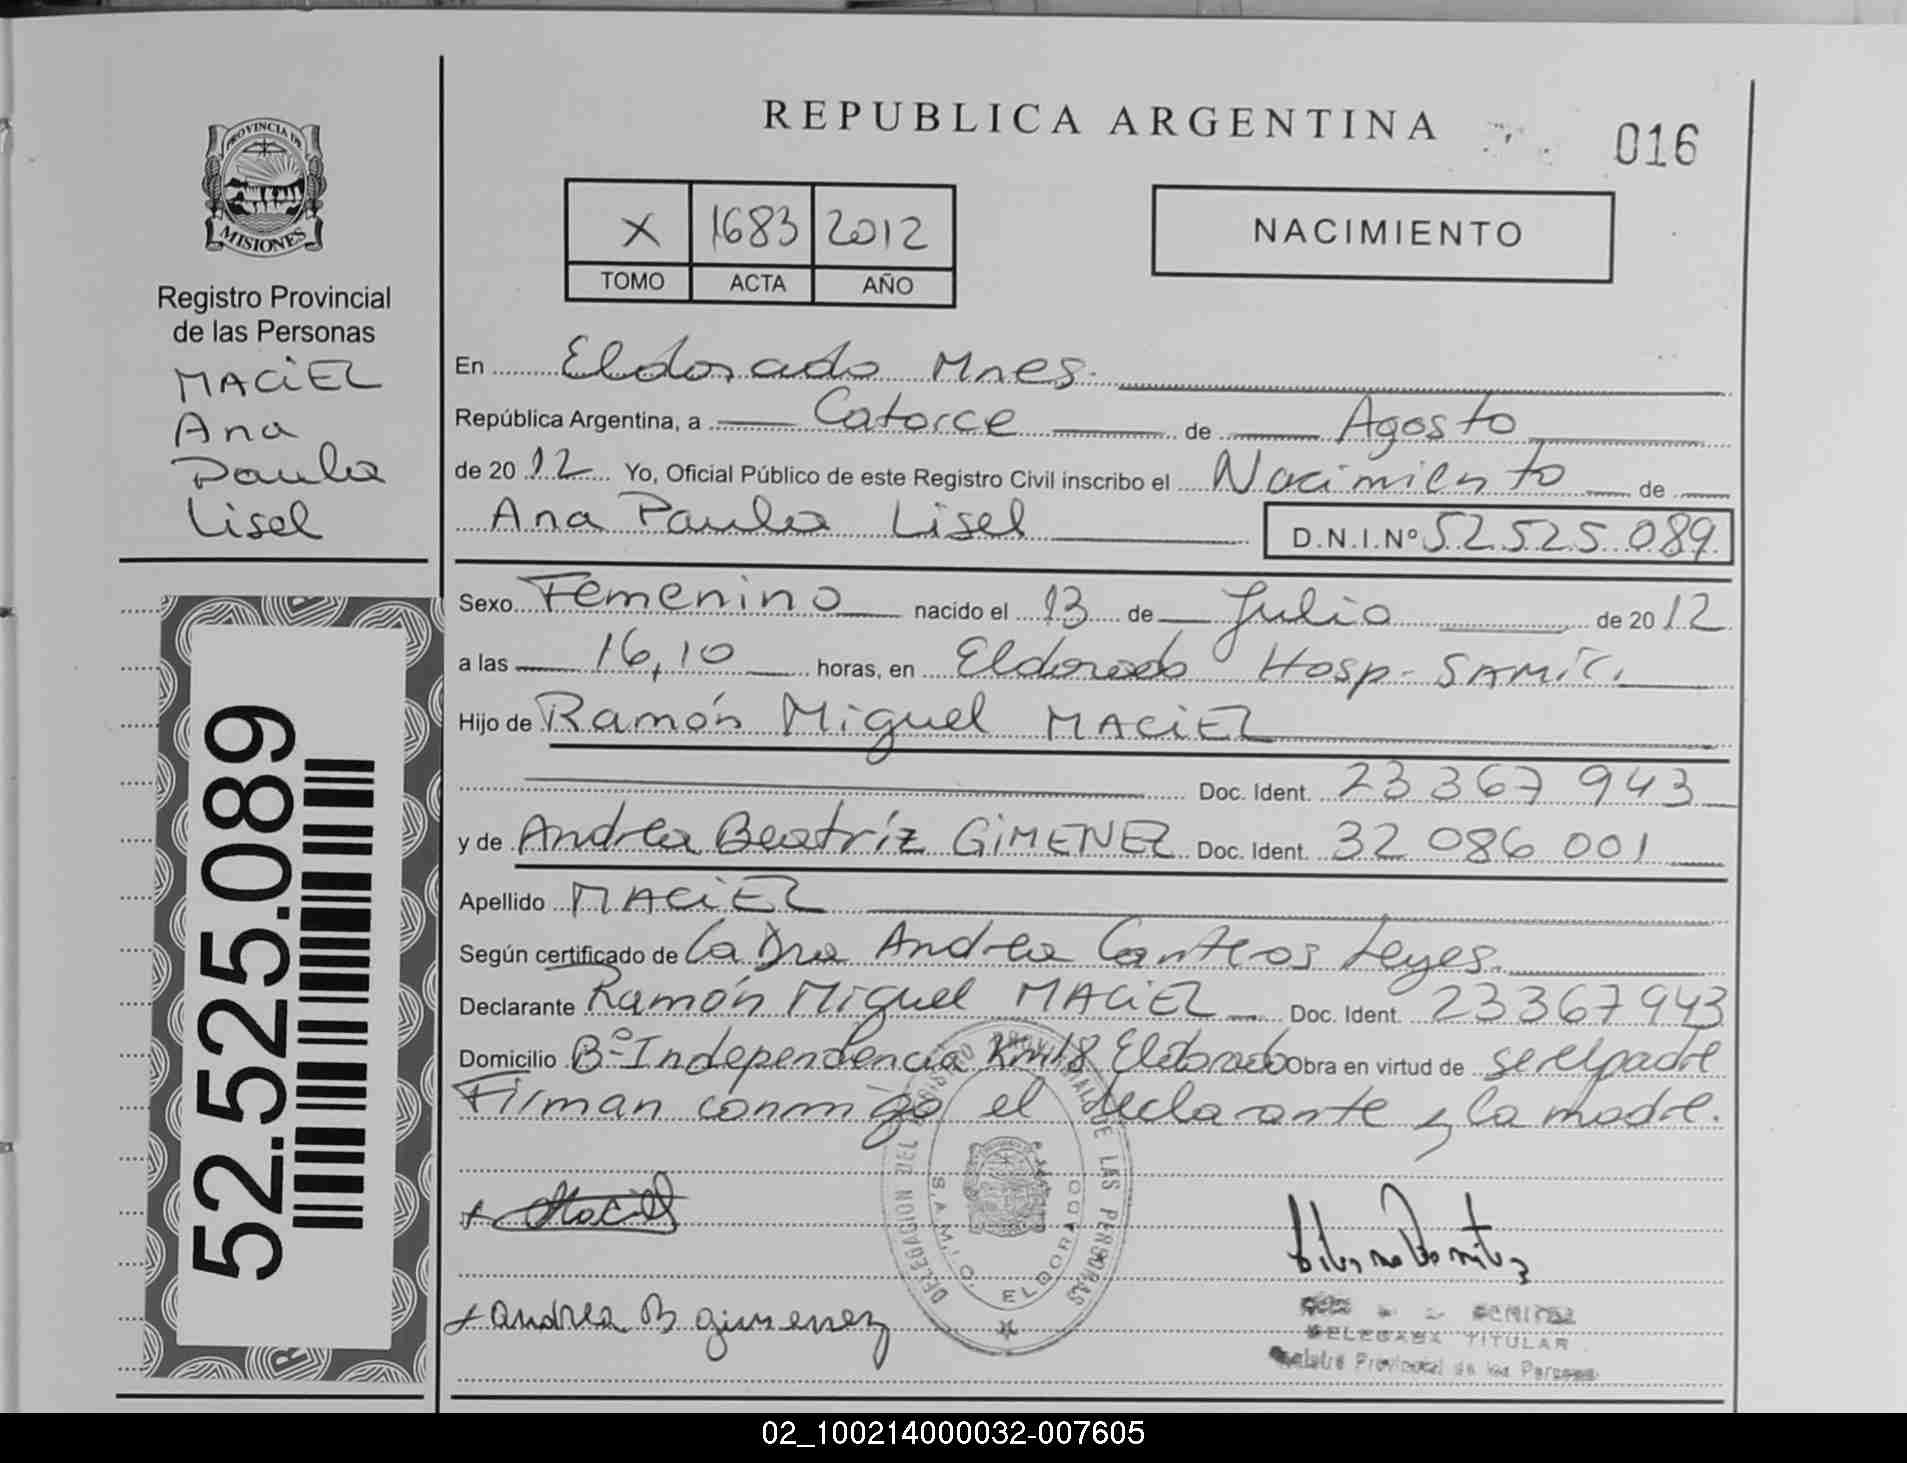 REPUBLICA ARGENTINA
016
PROVINCIA DE
MISIONES
Registro Provincial
de las Personas
MACiEL
Ana
Paula
Lisel
X 1683 2012
TOMO ACTA AÑO
NACIMIENTO
En Eldorado Mnes.
República Argentina, a Catorce de Agosto
de 2012 Yo, Oficial Público de este Registro Civil inscribo el Nacimiento de
Ana Paula Lisel D.N.I.Nº 52.525.089
Sexo Femenino nacido el 13 de Julio de 2012
a las 16,10 horas, en Eldorado Hosp. SAMIC.
Hijo de Ramón Miguel MACiEL
Doc. Ident. 23 367 943
y de Andrea Beatríz GiMENEZ Doc. Ident. 32 086 001
Apellido MACiEL
Según certificado de La Dra Andrea Canteros Leyes.
Declarante Ramón Miguel MACiEL Doc. Ident. 23367943
Domicilio Bº Independencia Km18 Eldorado Obra en virtud de ser el padre
Firman conmigo el declarante y la madre.
52.525.089
DELEGACION DEL REGISTRO PROVINCIAL DE LAS PERSONAS
S.A.M.I.C. ELDORADO
Maciel
Andrea B gimenez
BENITEZ
DELEGADA TITULAR
Registro Provincial de las Personas
02_100214000032-007605